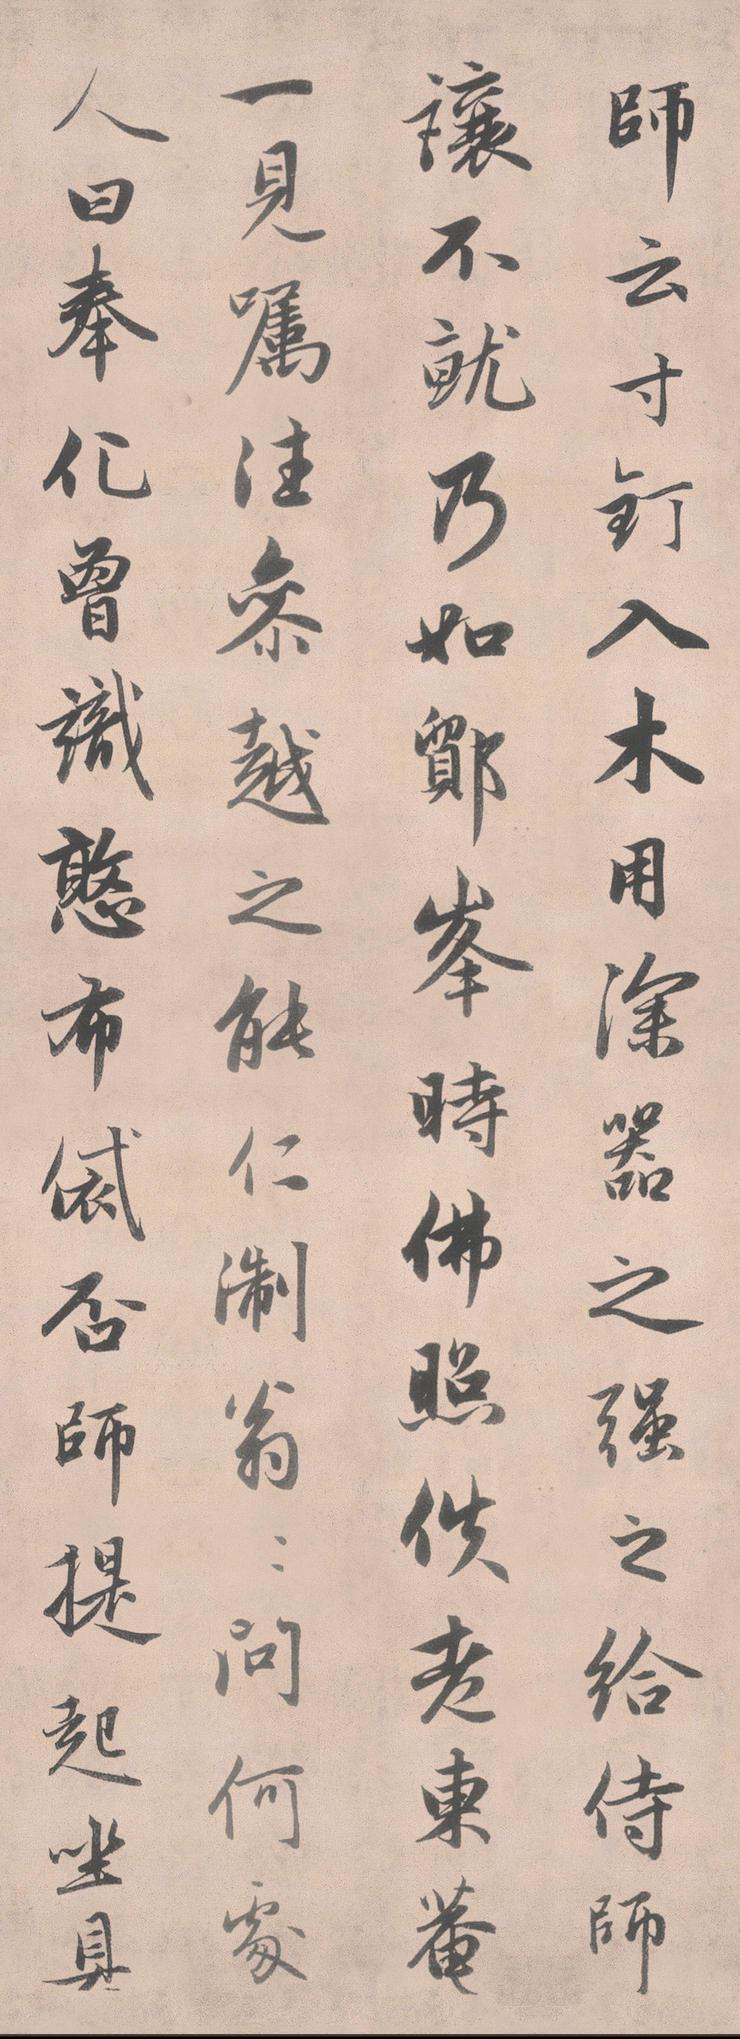 師云寸釘入木用深器之强之給侍師
讓不就乃如鄮峯時佛照佚老東菴
一見囑注叅越之能仁淛翁〻問何處
人曰奉化曾識憨布袋否師提起坐具